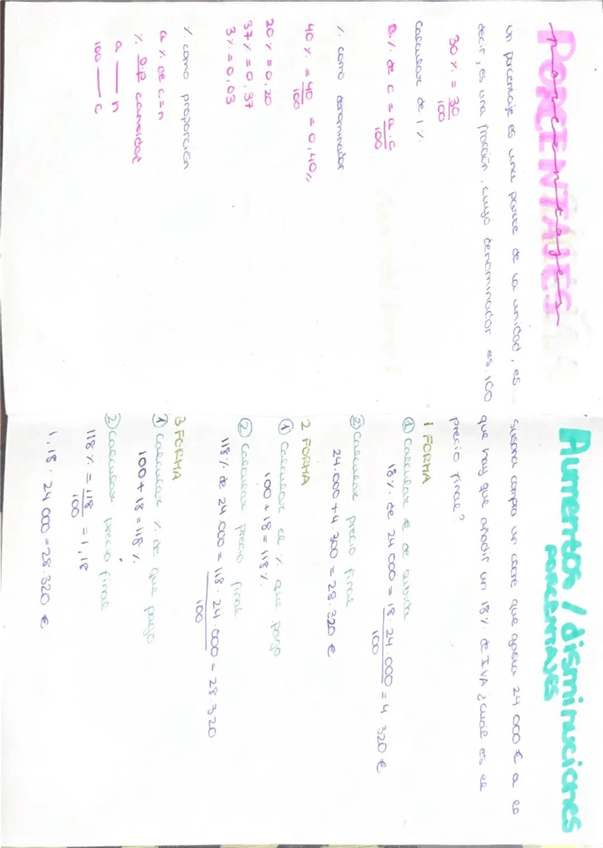 PORCENTAJES
porcentajes
un porcentaje es una parte de la unidad, es
decir, es una fracción, cuyo denominador es 100
30 % = 30/100
Calcular de 1 %
a % de c = a.c/100
% como denominador
40 % = 40/100 = 0,40
20 % = 0,20
37 % = 0,37
3 % = 0,03
% como proporción
a % de c = n
% D.P cantidad
a — n
100 — c
Aumentos / disminuciones
PORCENTAJES
Susana compra un coche que cuesta 24 000 € a
que hay que añadir un 18 % de IVA ¿cuál es el
precio final?
1 FORMA
① Calcular € de subida
18 % de 24 000 = 18 24 000/100 = 4 320 €
② Calcular precio final
24.000 + 4 300 = 28 320 €
2 FORMA
① Calcular el % que pago
100 + 18 = 118 %
② Calcular precio final
118 % de 24 000 = 118 . 24 . 000/100 = 28 320
3 FORMA
① Calcular % de que pago
100 + 18 = 118 %
② Calcular precio final
118 % = 118/100 = 1,18
1,18 . 24 000 = 28.320 €